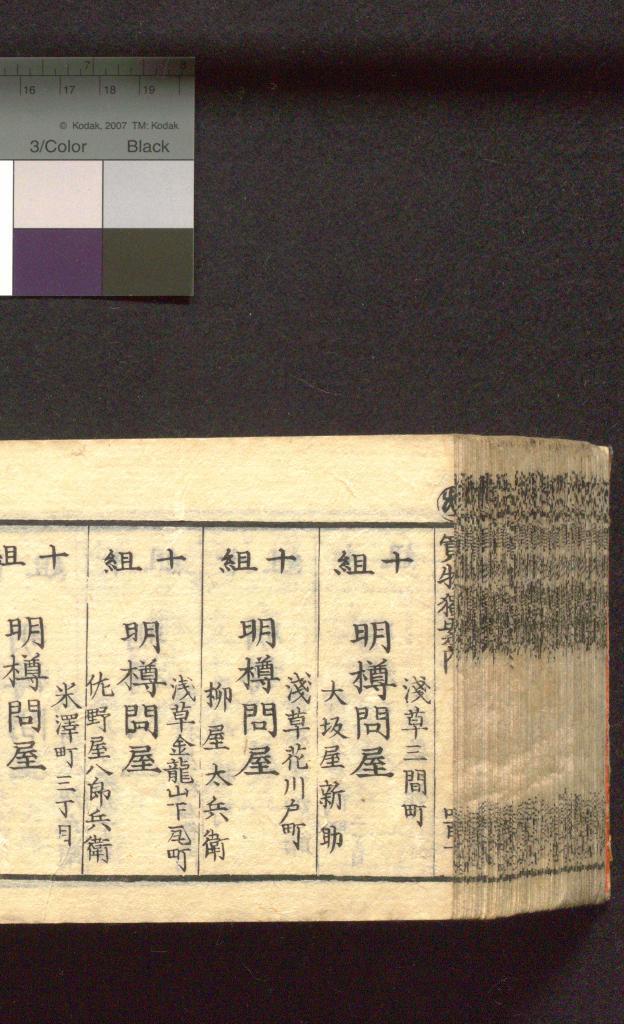 7 8
16 17 18 19
© Kodak, 2007 TM: Kodak
3/Color Black
十組
淺草三間町
明樽問屋
大坂屋新助
十組
淺草花川戸町
明樽問屋
柳屋太兵衛
十組
浅草金龍山下瓦町
明樽問屋
佐野屋八郎兵衛
十組
米澤町三丁目
明樽問屋